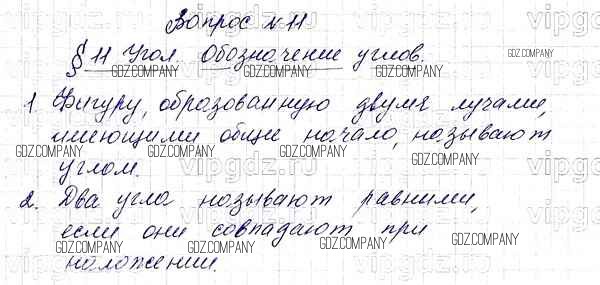 Вопрос №11
§ 11 Угол. Обозначение углов.
1. Фигуру, образованную двумя лучами,
имеющими общее начало, называют
углом.
2. Два угла называют равными,
если они совпадают при
наложении.